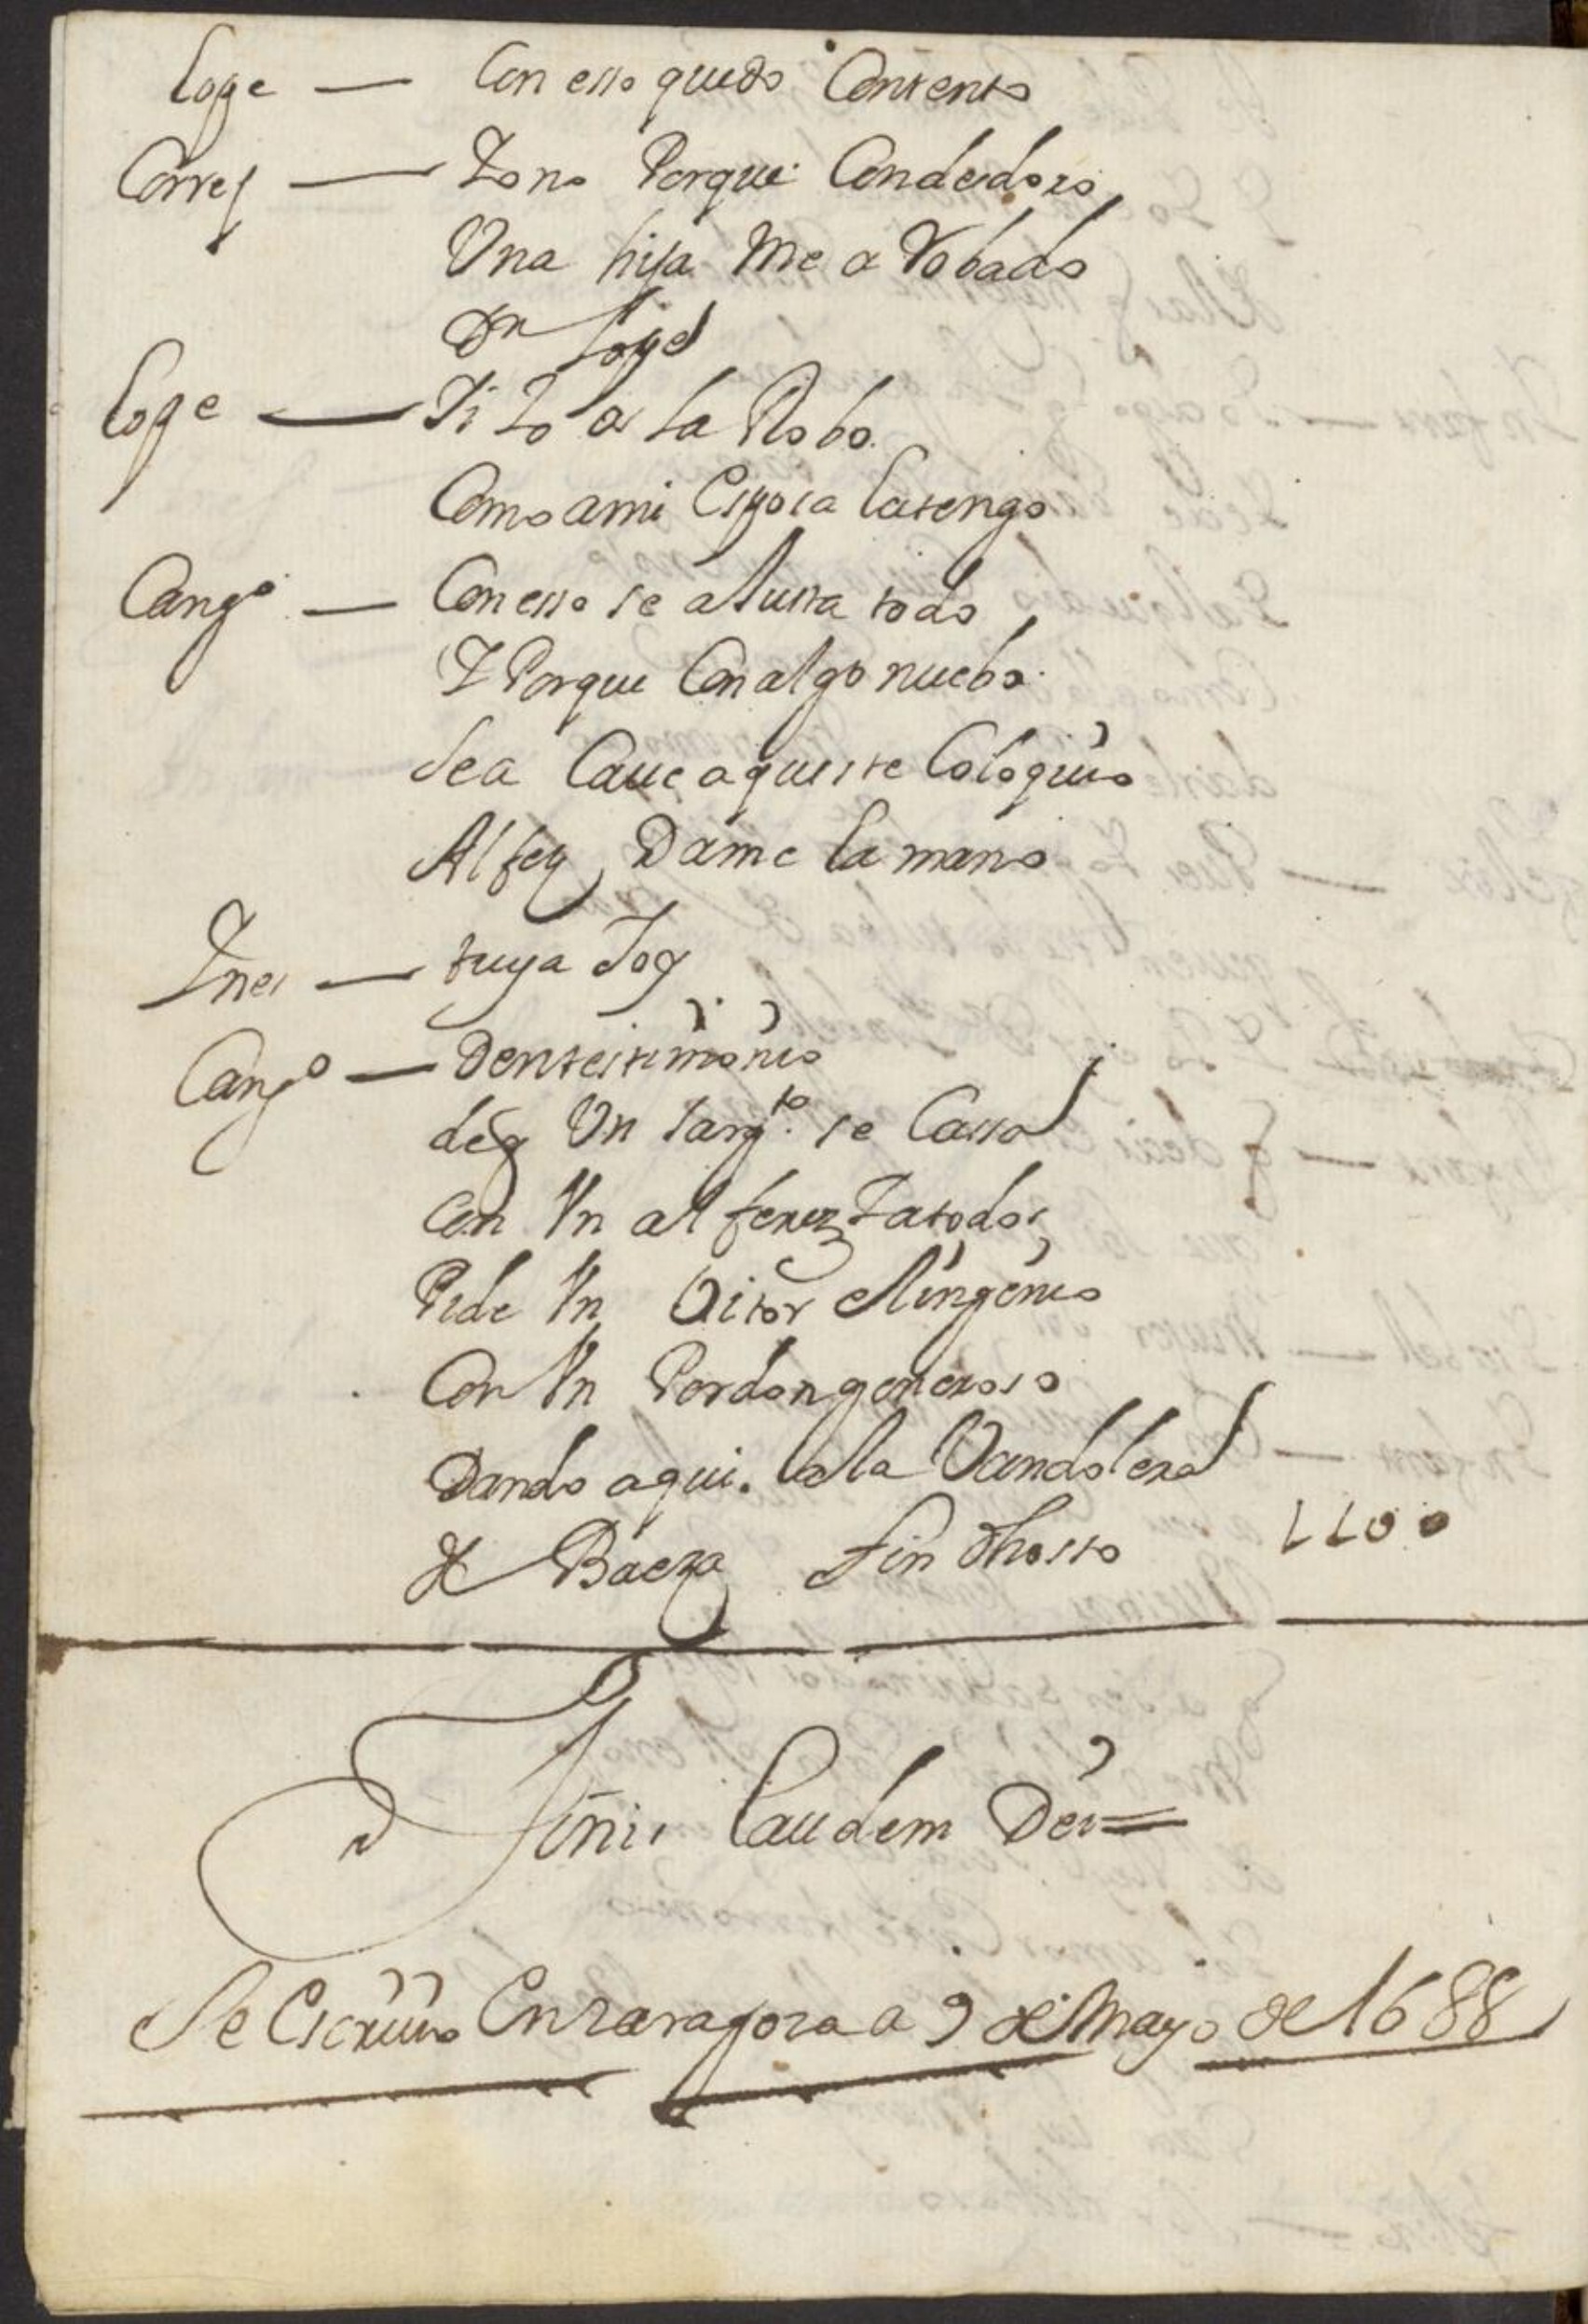 Lope — Con esso quedo Contento
Correg — Yo no Porque Condecoro
Una hija Me a Robado
Dn Lope
Lope — Si Yo a la Robo
Como a mi Esposa la tengo
Cang.o — Con esso se aJusta todo,
Y Porque Con algo nuebo
Sea Caue aqueste Coloquio
Alferz Dame la mano
Ynes — tuya Soy
Cang.o — Den testimonio
de q Un sarg.to se Cassa
Con Un alferez Y a todos
Pide Un Vitor el Yngenio
Con Un Perdon generoso
Dando aqui a la Vandolera
de Baeza fin dhosso 1100
Finis Laudem Dei =
Se Escriuio En zaragoza a 9 de Mayo de 1688